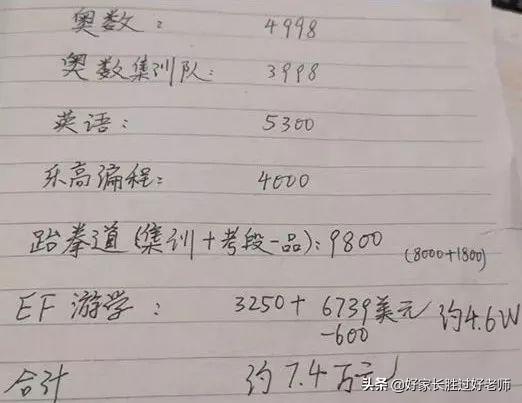 奥数: 4998
奥数集训队: 3998
英语: 5300
乐高编程: 4000
跆拳道(集训+考段一品): 9800 (8000+1800)
EF 游学: 3250+ 6739美元 约4.6W
-600
合计 约7.4万元
头条 @好家长胜过好老师